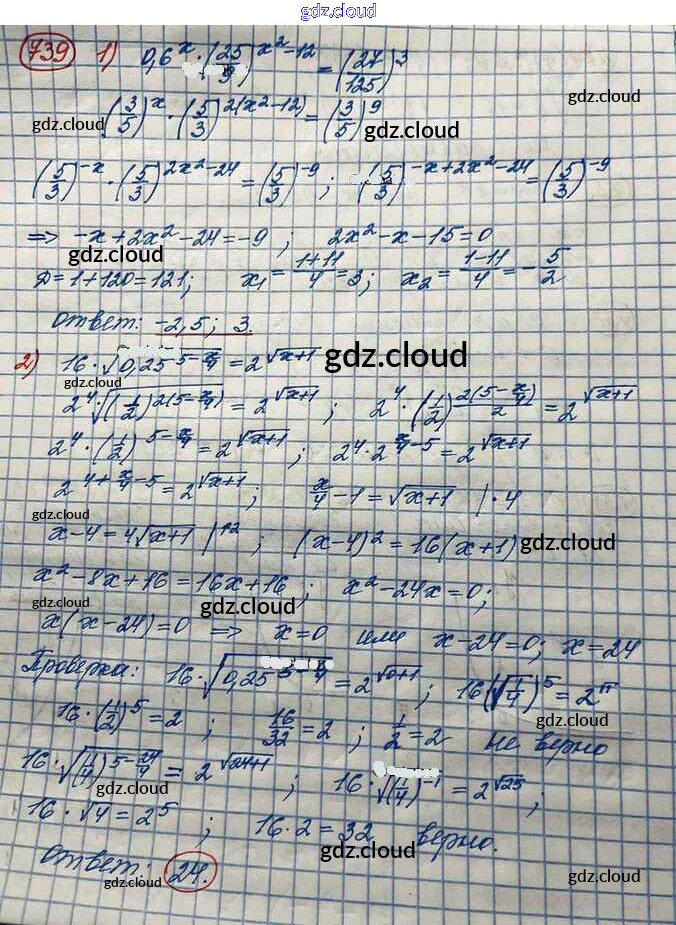 gdz.cloud
gdz.cloud
739 1) 0,6^x · (25/9)^(x²-12) = (27/125)^3
(3/5)^x · (5/3)^(2(x²-12)) = (3/5)^9
gdz.cloud gdz.cloud gdz.cloud
(5/3)^(-x) · (5/3)^(2x²-24) = (5/3)^(-9) ; (5/3)^(-x+2x²-24) = (5/3)^(-9)
⇒ -x+2x²-24=-9 ; 2x²-x-15=0
gdz.cloud gdz.cloud
Д=1+120=121; x₁=(1+11)/4=3; x₂=(1-11)/4=-5/2
ответ: -2,5; 3.
2) 16·√(0,25^(5-x/4)) = 2^√(x+1) gdz.cloud
2^4·√((1/2)^(2(5-x/4))) = 2^√(x+1) ; 2^4·(1/2)^(2(5-x/4)/2) = 2^√(x+1)
2^4·(1/2)^(5-x/4) = 2^√(x+1) ; 2^4·2^(x/4-5) = 2^√(x+1)
2^(4+x/4-5) = 2^√(x+1) ; x/4-1=√(x+1) |·4
gdz.cloud
x-4=4√(x+1) |↑2 ; (x-4)²=16(x+1) gdz.cloud
x²-8x+16=16x+16 ; x²-24x=0;
gdz.cloud gdz.cloud gdz.cloud
x(x-24)=0 ⇒ x=0 или x-24=0; x=24
Проверка: 16·√(0,25^5) = 2^√(0+1) ; 16(√(1/4))^5=2
16·(1/2)^5=2 ; 16/32=2 ; 1/2=2 не верно
gdz.cloud
16·√((1/4)^(5-24/4)) = 2^√(24+1) ; 16·√((1/4)^(-1)) = 2^√25 ;
gdz.cloud gdz.cloud
16·√4=2^5 ; 16·2=32 верно.
gdz.cloud
ответ: 24.
gdz.cloud gdz.cloud gdz.cloud